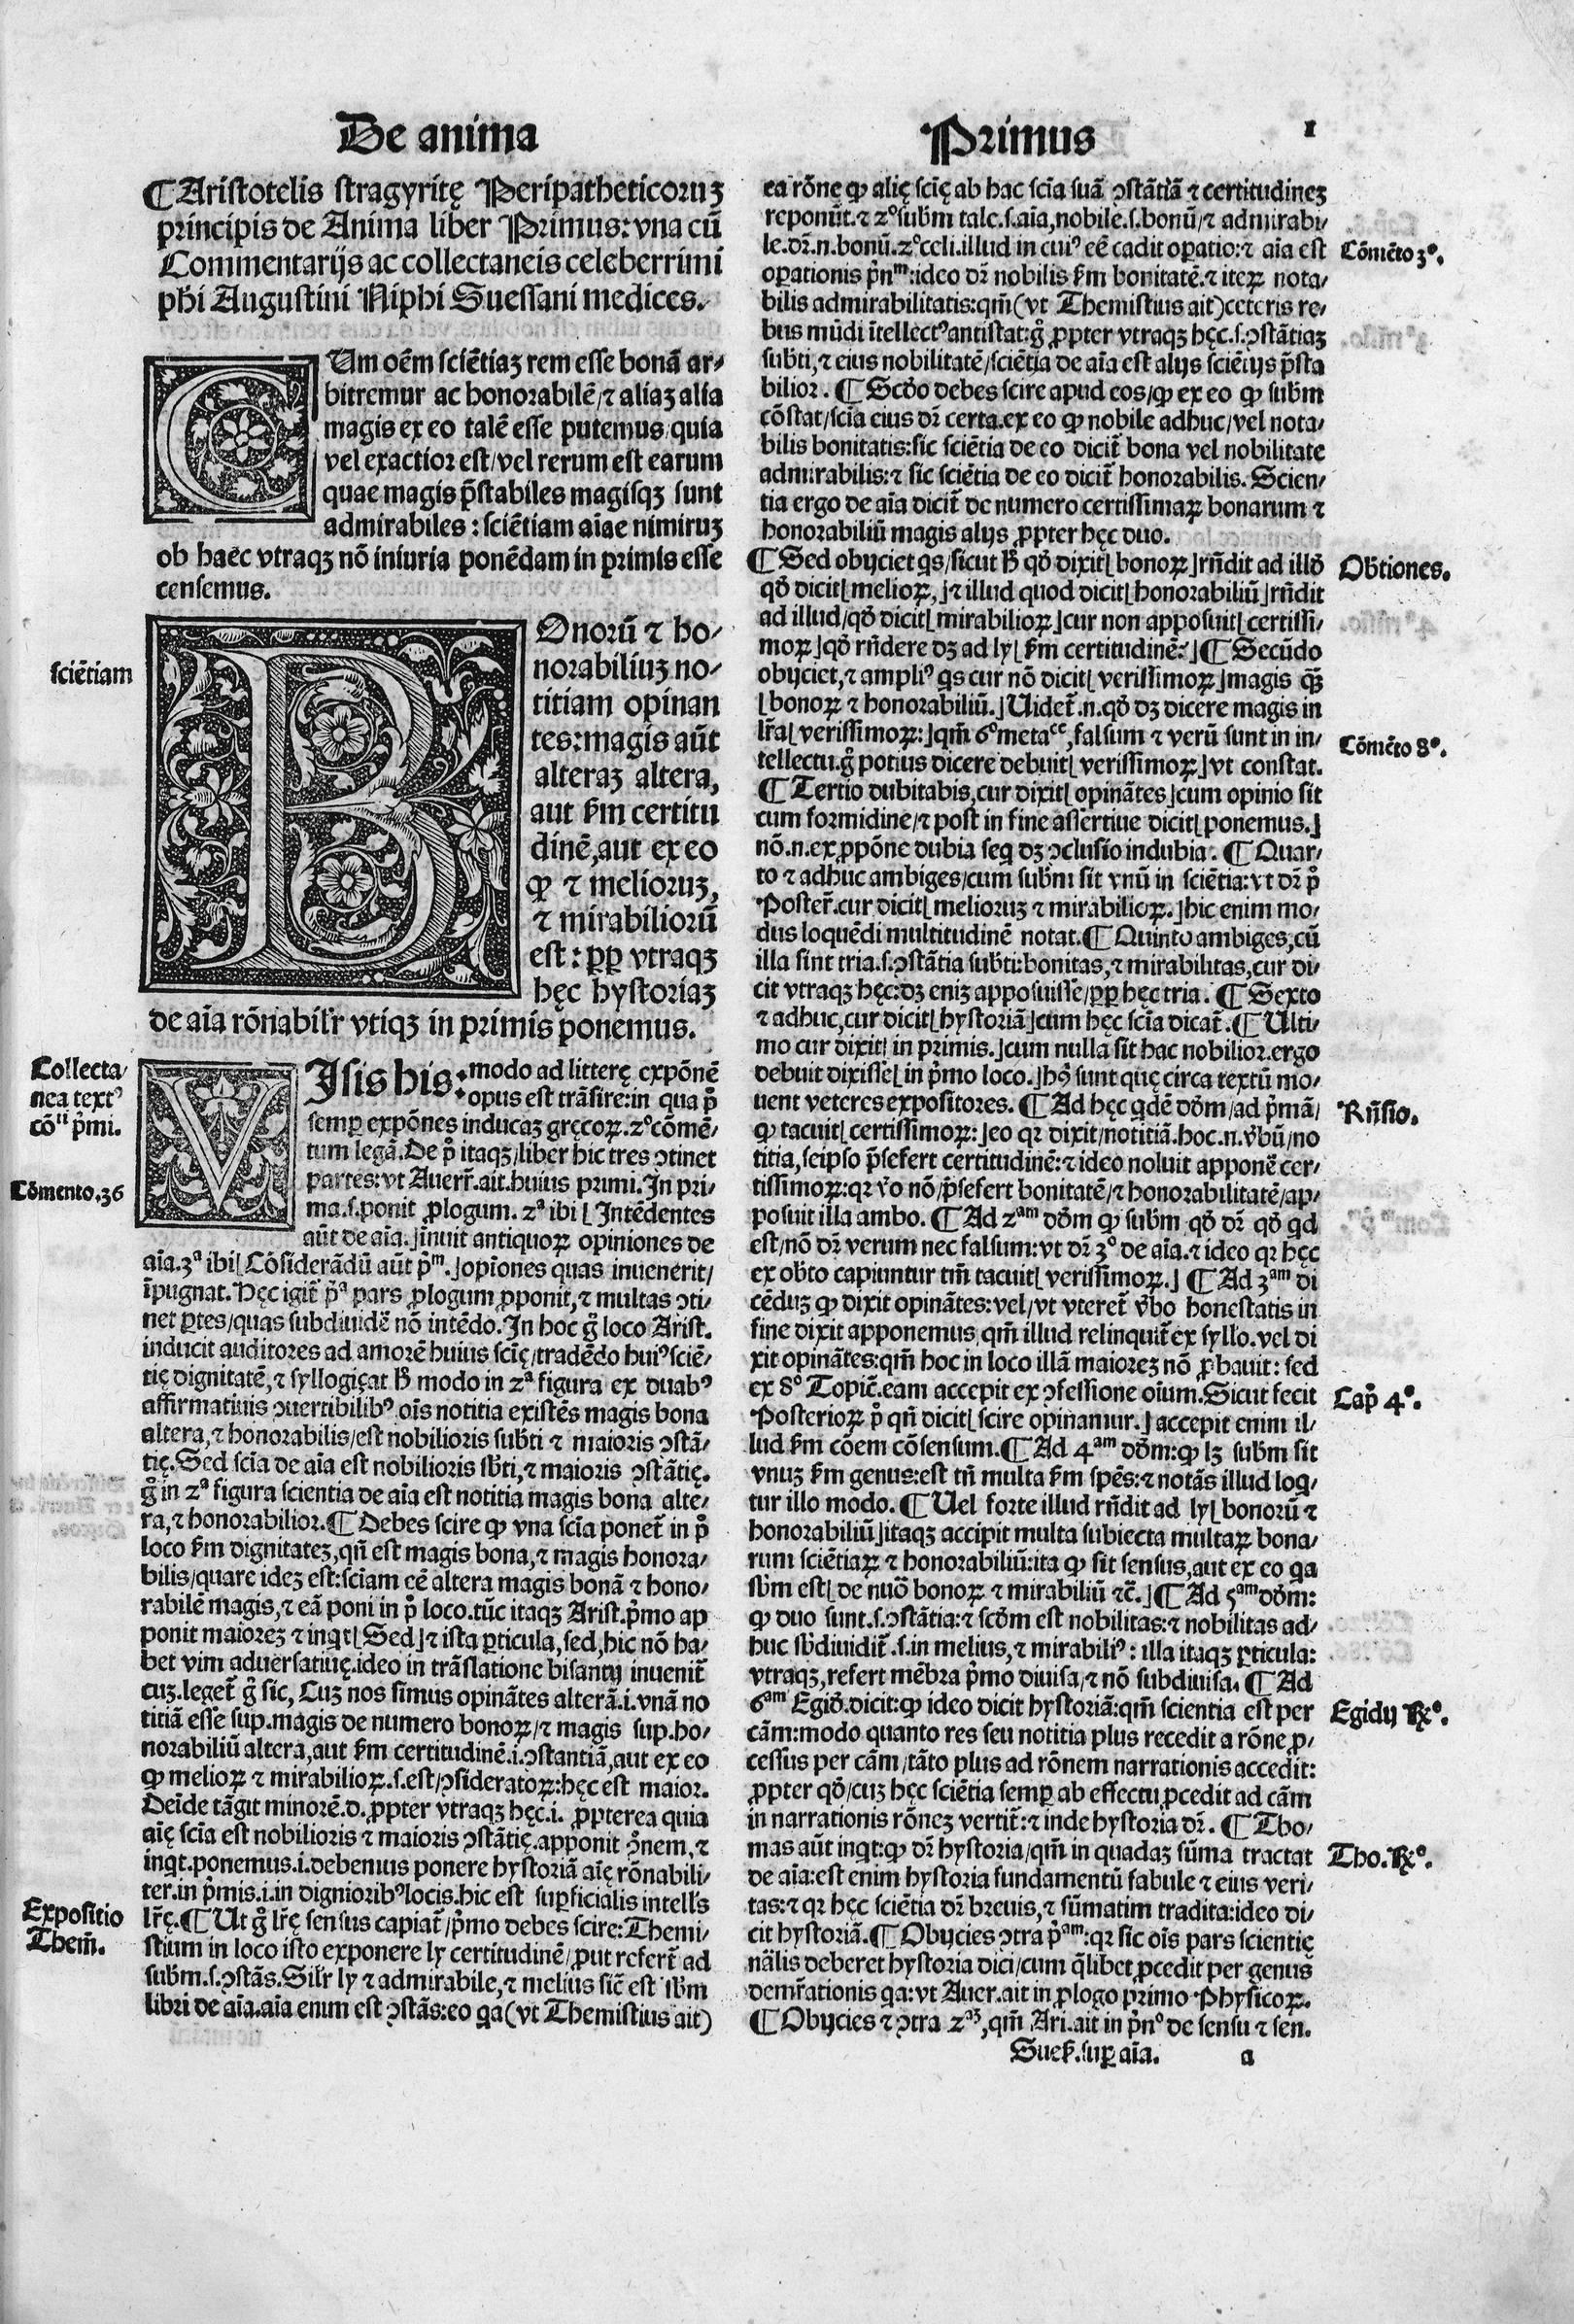 De anima
Primus
1
¶Aristotelis stragyritę Peripatheticoruꝫ
principis de Anima liber Primus: vna cũ
Commentarijs ac collectaneis celeberrimi
phi Augustini Niphi Suessani medices.
CUm oẽm sciẽtiaꝫ rem esse bonã ar-
bitremur ac honorabilẽ/⁊ aliaꝫ alia
magis ex eo talẽ esse putemus quia
vel exactior est/vel rerum est earum
quae magis p̃stabiles magisqꝫ sunt
admirabiles: sciẽtiam aĩae nimiruꝫ
ob haec vtraqꝫ nõ iniuria ponẽdam in primis esse
censemus.
sciẽtiam
BOnorũ ⁊ ho-
norabiliuꝫ no-
titiam opinan
tes:magis aũt
alteraꝫ altera,
aut ẜm certitu
dinẽ,aut ex eo
ꝙ ⁊ melioruꝫ,
⁊ mirabiliorũ
est: ꝓp̱ vtraqꝫ
hęc hystoriaꝫ
de aĩa rõnabilr̃ vtiqꝫ in primis ponemus.
Collecta-
nea textꝰ
cõⁱⁱ p̃mi.
Cõmento.36
VIsis his: modo ad litterę expõnẽ
opus est trãsire:in qua p̊
semꝑ expõnes inducaꝫ gręcoꝝ. 2º cõmẽ-
tum legã. De p̊ itaqꝫ/liber hic tres ↄtinet
partes:vt Auerr̃.ait.huius primi. In pri-
ma.s.ponit ꝓlogum. 2ª ibi⌊ Intẽdentes
aũt de aĩa.⌋inuit antiquoꝝ opiniones de
aĩa.3ª ibi⌊ Cõsiderãdũ aũt p̃ᵐ.⌋opĩones quas inuenerit/
ĩpugnat. Hęc igit̃ p̃ª pars ꝓlogum ꝓponit,⁊ multas ↄti-
net ꝑtes/quas subdiuidẽ nõ intẽdo. In hoc g̊ loco Arist.
inducit auditores ad amorẽ huius scĩę/tradẽdo huiꝰ sciẽ-
tię dignitatẽ,⁊ syllogiçat ħ modo in 2ª figura ex duabꝰ
affirmatiuis ↄuertibilibꝰ.oĩs notitia existẽs magis bona
altera,⁊ honorabilis/est nobilioris subti ⁊ maioris ↄstã-
tię. Sed scĩa de aĩa est nobilioris sbti,⁊ maioris ↄstãtię.
g̊ in 2ª figura scientia de aĩa est notitia magis bona alte-
ra,⁊ honorabilior. ¶ Debes scire ꝙ vna scĩa ponet̃ in p̊
loco ẜm dignitateꝫ,qñ est magis bona,⁊ magis honora-
bilis/quare ideꝫ est:scĩam eẽ altera magis bonã ⁊ hono-
rabilẽ magis,⁊ eã poni in p̊ loco.tũc itaqꝫ Arist.p̃mo ap
ponit maioreꝫ ⁊ inqt⌊ Sed⌋⁊ ista ꝑticula,sed,hic nõ ha-
bet vim aduersatiuę.ideo in trãslatione bisantij inuenit̃
cuꝫ.leget̃ g̊ sic, Cuꝫ nos simus opinãtes alterã.i.vnã no
titiã esse sup.magis de numero bonoꝝ/⁊ magis sup.ho-
norabiliũ altera,aut ẜm certitudinẽ.i.ↄstantiã,aut ex eo
ꝙ melioꝝ ⁊ mirabilioꝝ.s.est/ↄsideratoꝝ:hęc est maior.
Deĩde tãgit minorẽ.d.ꝓpter vtraqꝫ hęc.i. ꝓpterea quia
aĩę scĩa est nobilioris ⁊ maioris ↄstãtię.apponit ↄ̃nem,⁊
inqt.ponemus.i.debemus ponere hystoriã aĩę rõnabili-
ter.in p̃mis.i.in dignioribꝰ locis.hic est suꝑficialis intells
lr̃ę. ¶ Ut g̊ lr̃ę sensus capiat̃/p̃mo debes scire: Themi-
stium in loco isto exponere ly certitudinẽ/ꝓut refert̃ ad
subm.s.ↄstãs. Silr̃ ly ⁊ admirabile,⁊ melius sic̃ est sbm
libri de aĩa.aĩa enim est ↄstãs:eo qa (vt Themistius ait)
Expositio
Them̃.
ea rõne ꝙ alię scię ab hac scĩa suã ↄstãtiã ⁊ certitudineꝫ
reponũt.⁊ 2º subm tale.s.aĩa,nobile.s.bonũ/⁊ admirabi-
le.dr̃.n.bonũ.2º celi.illud in cuiꝰ eẽ cadit oꝑatio:⁊ aĩa est
oꝑationis p̃nᵐ:ideo dr̃ nobilis ẜm bonitatẽ.⁊ iteꝝ nota-
bilis admirabilitatis:qm̃(vt Themistius ait)ceteris re-
bus mũdi ĩtellectꝰ antistat:g̊ ꝓpter vtraqꝫ hęc.s.ↄstãtiaꝫ
subti,⁊ eius nobilitatẽ/sciẽtia de aĩa est alijs sciẽtijs p̃sta
bilior. ¶ Scdo debes scire apud eos/ꝙ ex eo ꝙ subm
cõstat/scĩa eius dr̃ certa.ex eo ꝙ nobile adhuc/vel nota-
bilis bonitatis:sic sciẽtia de eo dicit̃ bona vel nobilitate
admirabilis:⁊ sic sciẽtia de eo dicit̃ honorabilis. Scien-
tia ergo de aĩa dicit̃ de numero certissimaꝝ bonarum ⁊
honorabiliũ magis alijs ꝓpter hęc duo.
¶ Sed obijciet qs/sicut ħ qđ dixit⌊ bonoꝝ⌋rñdit ad illđ
qđ dicit⌊ melioꝝ,⌋⁊ illud quod dicit⌊ honorabiliũ⌋rñdit
ad illud/qđ dicit⌊ mirabilioꝝ⌋cur non apposuit⌊ certissi-
moꝝ⌋qđ rñdere dꝫ ad ly⌊ ẜm certitudinẽ?⌋¶ Secũdo
obijciet,⁊ ampliꝰ qs cur nõ dicit⌊ verissimoꝝ⌋magis qꝫ̃
⌊bonoꝝ ⁊ honorabiliũ.⌋Uidet̃.n.qđ dꝫ dicere magis in
lr̃a⌊ verissimoꝝ:⌋qm̃ 6º metaᶜᵉ,falsum ⁊ verũ sunt in in-
tellectu.g̊ potius dicere debuit⌊ verissimoꝝ⌋vt constat.
¶ Tertio dubitabis,cur dixit⌊ opinãtes⌋cum opinio sit
cum formidine/⁊ post in fine assertiue dicit⌊ ponemus.⌋
nõ.n.ex ꝓpõne dubia seq dꝫ ↄclusio indubia. ¶ Quar-
to ⁊ adhuc ambiges/cum subm sit vnũ in sciẽtia:vt dr̃ p̊
Poster̃.cur dicit⌊ melioruꝫ ⁊ mirabilioꝝ.⌋hic enim mo-
dus loquẽdi multitudinẽ notat.¶ Quinto ambiges,cũ
illa sint tria.s.ↄstãtia subti:bonitas,⁊ mirabilitas,cur di-
cit vtraqꝫ hęc:dꝫ eniꝫ apposuisse/ꝓp̱ hęc tria. ¶ Sexto
⁊ adhuc,cur dicit⌊ hystoriã⌋cum hęc scĩa dicat̃. ¶ Ulti-
mo cur dixit⌊ in primis.⌋cum nulla sit hac nobilior.ergo
debuit dixisse⌊ in p̃mo loco.⌋hꝰ sunt quę circa textũ mo-
uent veteres expositores. ¶ Ad hęc qdẽ dõm/ad p̃mã/
ꝙ tacuit⌊ certissimoꝝ:⌋eo qꝛ dixit/notitiã.hoc.n.v̊bũ/no
titia,seipso p̃sefert certitudinẽ:⁊ ideo noluit apponẽ cer-
tissimoꝝ:qꝛ v̊o nõ/p̃sefert bonitatẽ/⁊ honorabilitatẽ/ap-
posuit illa ambo. ¶ Ad 2ᵃᵐ dõm ꝙ subm qđ dr̃ qđ qd
est/nõ dr̃ verum nec falsum:vt dr̃ 3º de aĩa.⁊ ideo qꝛ hęc
ex obto capiuntur tm̃ tacuit⌊ verissimoꝝ.⌋ ¶ Ad 3ᵃᵐ di
cẽduꝫ ꝙ dixit opinãtes:vel/vt vteret̃ v̊bo honestatis in
fine dixit apponemus qm̃ illud relinquit̃ ex syllo.vel di
xit opinãtes:qm̃ hoc in loco illã maioreꝫ nõ ꝓbauit: sed
ex 8º Topic̃.eam accepit ex ↄfessione oĩum. Sicut fecit
Posterioꝝ p̊ qñ dicit⌊ scire opinamur.⌋accepit enim il-
lud ẜm cõem cõsensum.¶ Ad 4ᵃᵐ dõm:ꝙ lꝫ subm sit
vnuꝫ ẜm genus:est tñ multa ẜm spẽs:⁊ notãs illud loq-
tur illo modo. ¶ Uel forte illud rñdit ad ly⌊ bonorũ ⁊
honorabiliũ⌋itaqꝫ accipit multa subiecta multaꝝ bona-
rum sciẽtiaꝝ ⁊ honorabiliũ:ita ꝙ sit sensus,aut ex eo qa
sbm est⌊ de nuõ bonoꝝ ⁊ mirabiliũ ⁊c̃.⌋¶ Ad 5ᵃᵐ dõm:
ꝙ duo sunt.s.ↄstãtia:⁊ scdm est nobilitas:⁊ nobilitas ad-
huc sbdiuidit̃.s.in melius,⁊ mirabiliꝰ: illa itaqꝫ ꝑticula:
vtraqꝫ,refert mẽbra p̃mo diuisa/⁊ nõ subdiuisa. ¶ Ad
6ᵃᵐ Egiđ.dicit:ꝙ ideo dicit hystoriã:qm̃ scientia est per
cãm:modo quanto res seu notitia plus recedit a rõne ꝓ-
cessus per cãm/tãto plus ad rõnem narrationis accedit:
ꝓpter qđ/cuꝫ hęc sciẽtia semꝑ ab effectu ꝓcedit ad cãm
in narrationis rõneꝫ vertit̃:⁊ inde hystoria dr̃. ¶ Tho-
mas aũt inqt:ꝙ dr̃ hystoria/qm̃ in quadaꝫ sũma tractat
de aĩa:est enim hystoria fundamentũ fabule ⁊ eius veri-
tas:⁊ qꝛ hęc sciẽtia dr̃ breuis,⁊ sũmatim tradita:ideo di-
cit hystoriã.¶ Obijcies ↄtra p̃ᵃᵐ:qꝛ sic oĩs pars scientię
nãlis deberet hystoria dici/cum q̃libet ꝓcedit per genus
demr̃ationis qa:vt Auer.ait in ꝓlogo primo Physicoꝝ.
¶ Obijcies ⁊ ↄtra 2ᵃꝫ,qm̃ Ari.ait in p̃nº de sensu ⁊ sen.
Cõmẽto 3º.
Obtiones.
Cõmẽto 8º.
Rñsio.
Cap̃ 4º.
Egidij ℞º.
Tho.℞º.
Sueẜ.suꝑ aĩa.
a